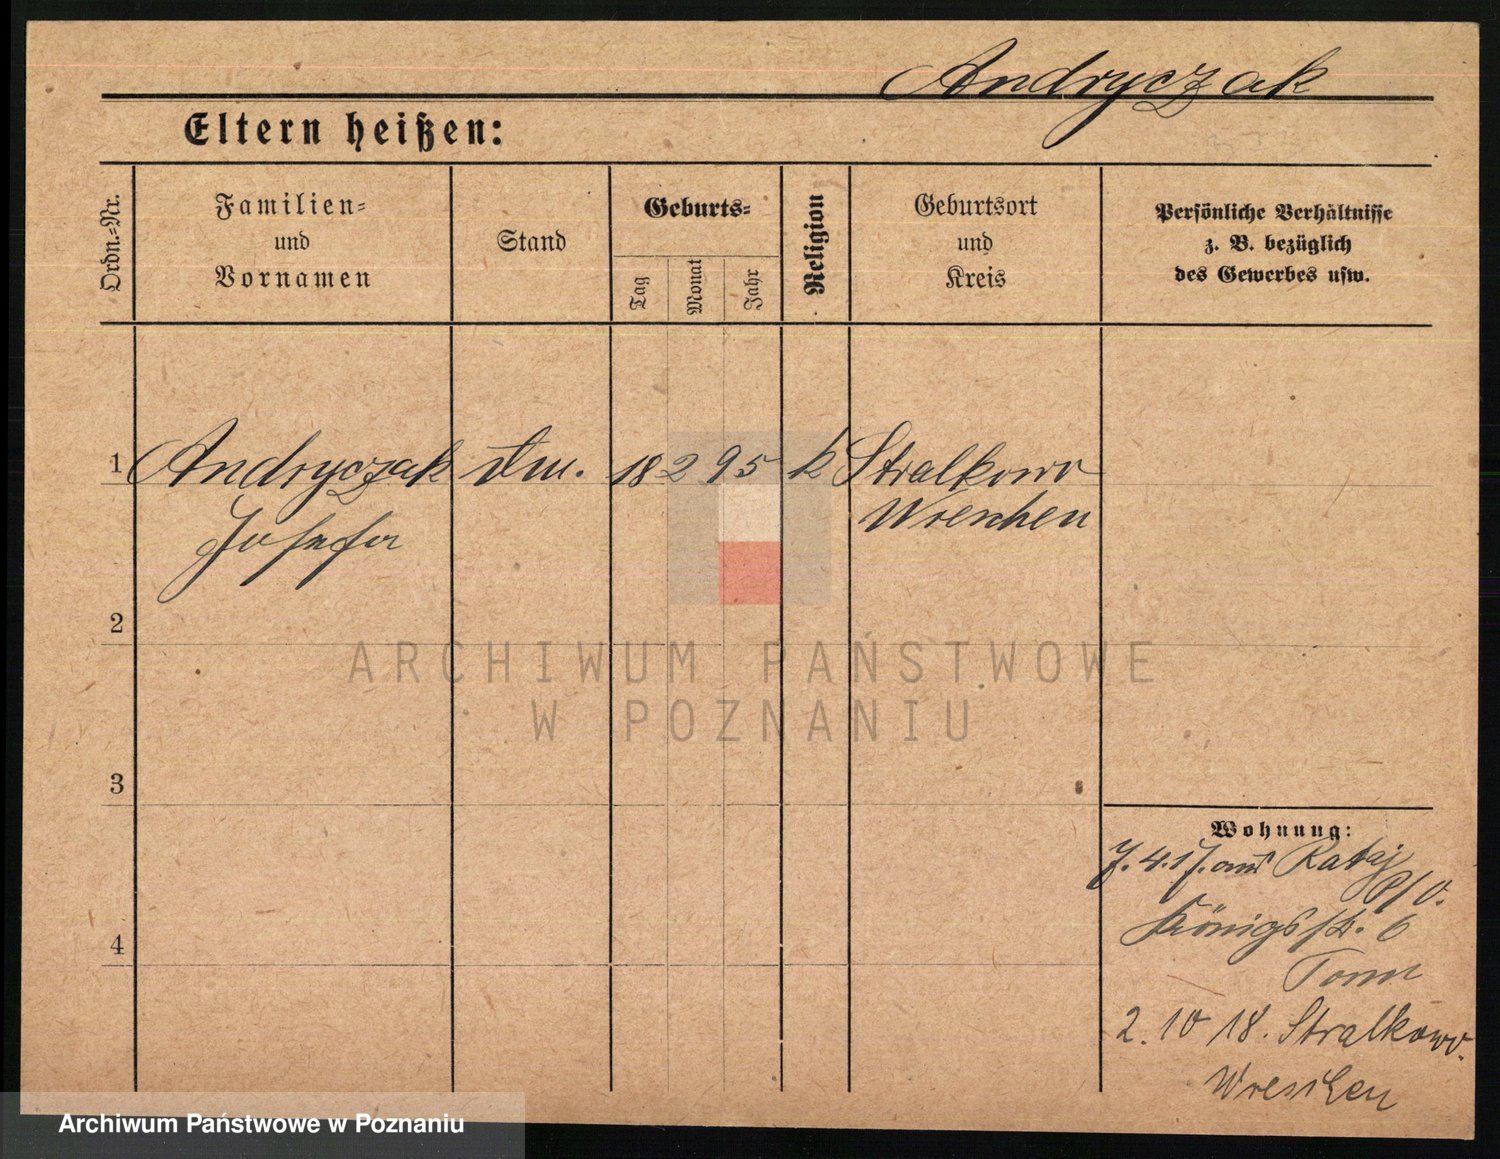 Andryczak
Eltern heißen:
Ordn.-Nr.
Familien-
und
Vornamen
Stand
Geburts-
Tag
Monat
Jahr
Religion
Geburtsort
und
Kreis
Persönliche Verhältnisse
z. B. bezüglich
des Gewerbes usw.
1 Andryczak 18 2 95 k Stralkowo
Josefa Wreschen
2
3
4
ARCHIWUM PAŃSTWOWE
W POZNANIU
Wohnung:
7. 4. 17. aus Rataj
P/O.
Königsstr. 6
2. 10 18. Stralkowo.
Wreschen
Archiwum Państwowe w Poznaniu